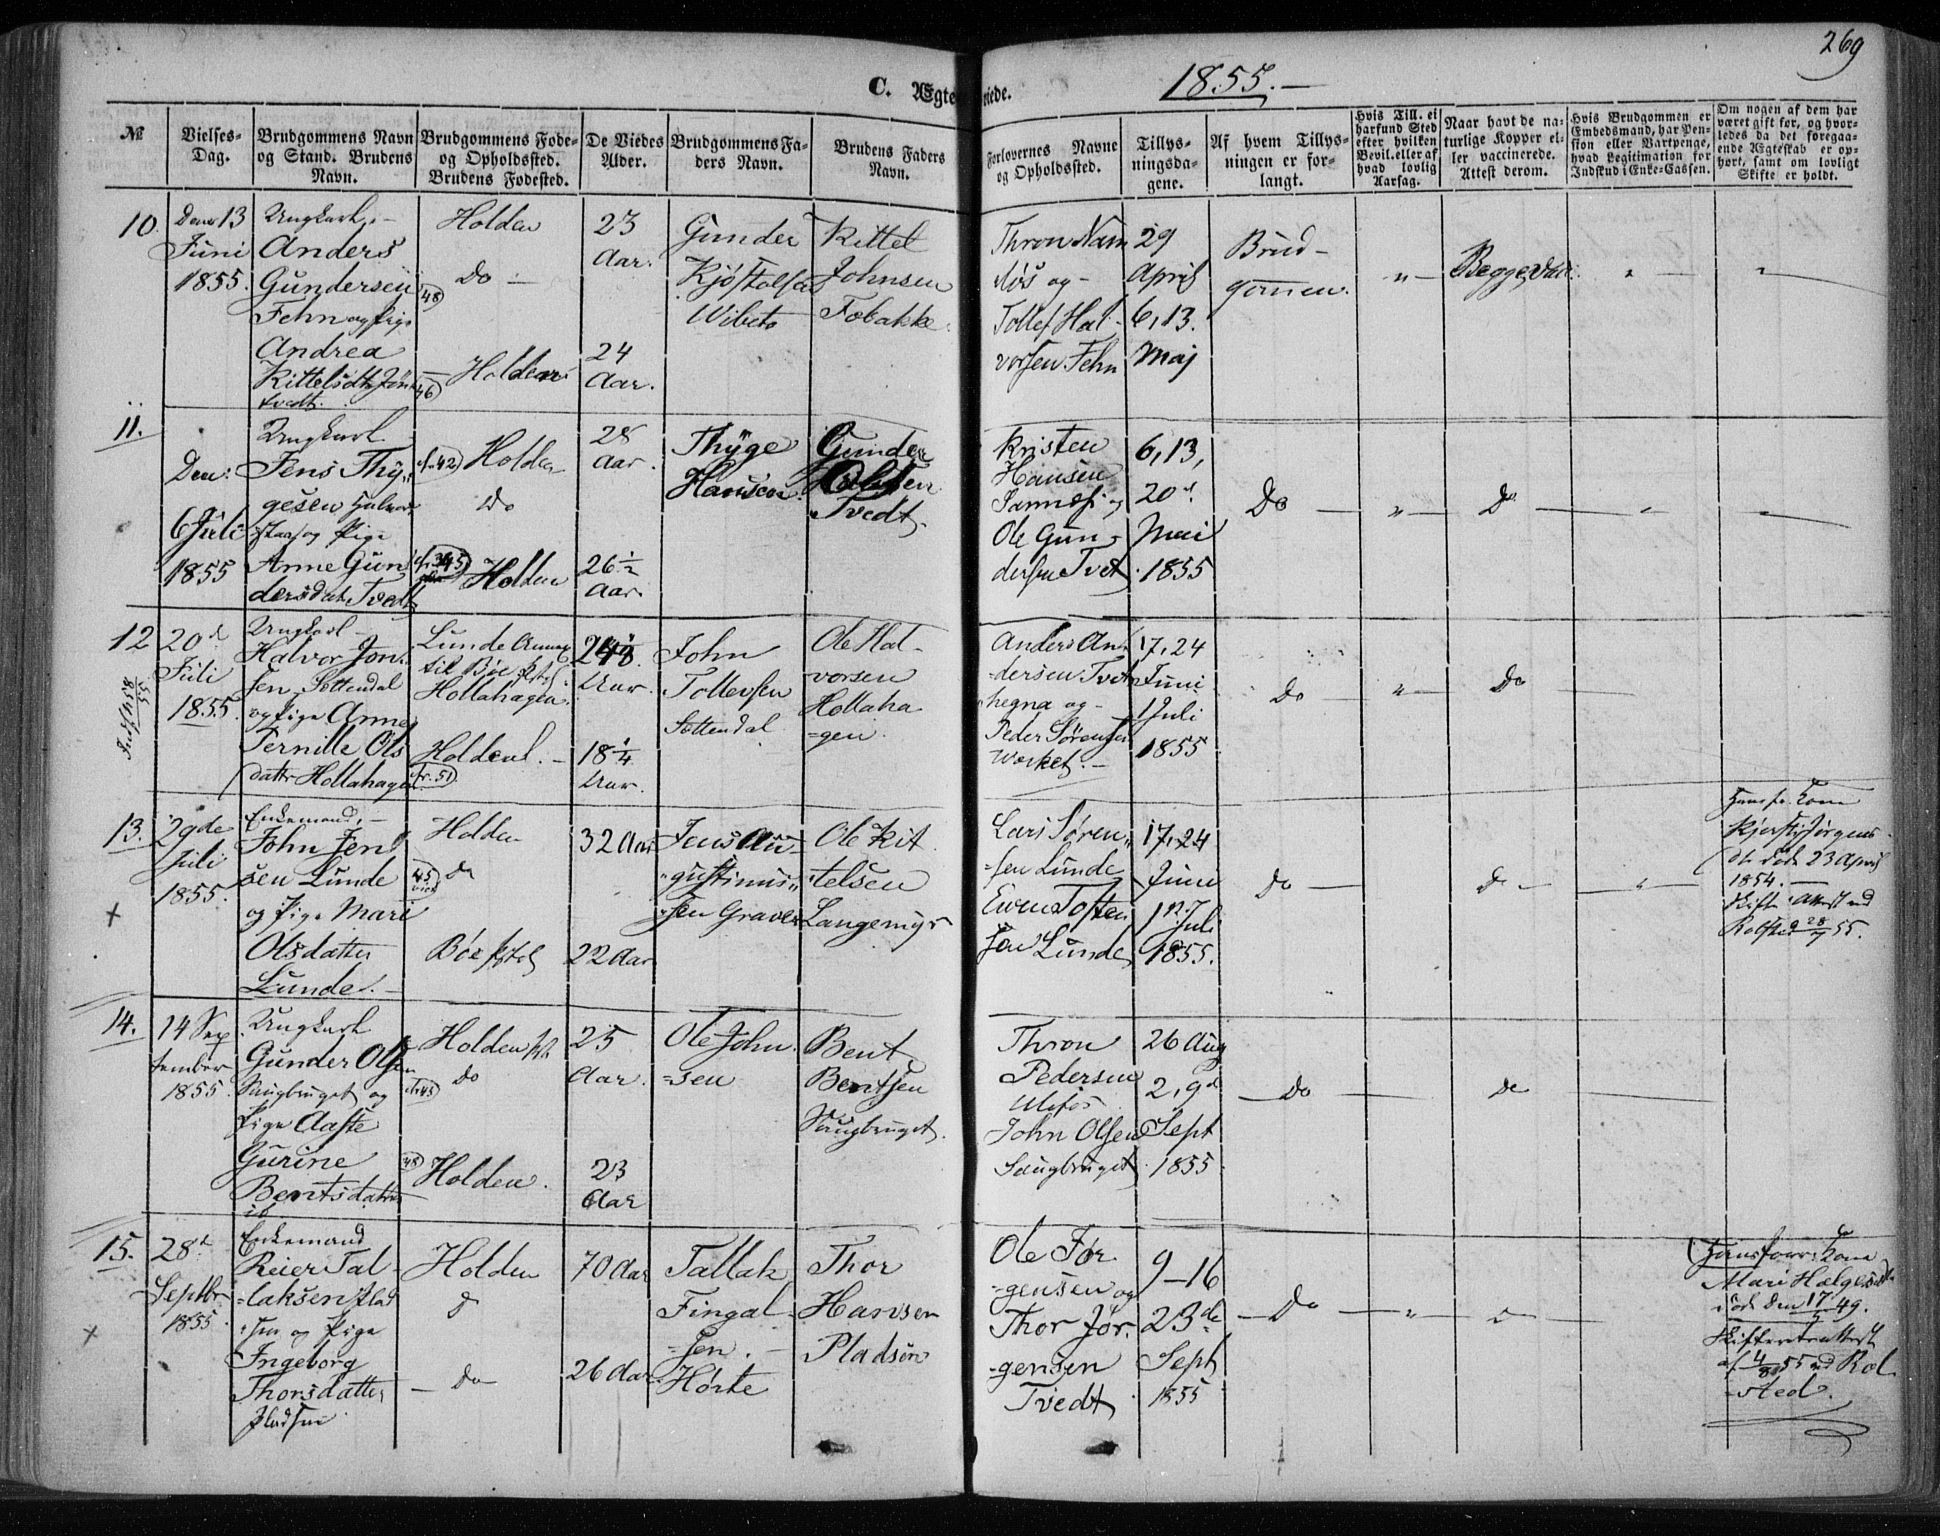 269
C. Ægteviede.
1855.
№
Vielses-
Dag.
Brudgommens Navn
og Stand. Brudens
Navn.
Brudgommens Føde-
og Opholdssted.
Brudens Fødested.
De Viedes
Alder.
Brudgommens Fa-
ders Navn.
Brudens Faders
Navn.
Forlovernes Navne
og Opholdssted.
Tillys-
ningsda-
gene.
Af hvem Tillys-
ningen er for-
langt.
Hvis Till. ei
har fund Sted
efter hvilken
Bevil. eller af
hvad lovlig
Aarsag.
Naar havt de na-
turlige Kopper el-
ler vaccinerede.
Attest derom.
Hvis Brudgommen er
Embedsmand, har Pen-
sion eller Vartpenge,
hvad Legitimation for
Indskud i Enke-Cassen.
Om nogen af dem har
været gift før, og hvor-
ledes da det foregaa-
ende Ægteskab er op-
hørt, samt om lovligt
Skifte er holdt.
10.
Den 13
Juni
1855.
Ungkarl
Anders
Gundersen
Fehn og Pige
Andrea
Kittelsdtr
tvedt.
Holden
Do
48
Holden
46
23
Aar.
24
Aar.
Gunder
Kjøstolsen
Wibeto
Kittel
Johnsen
Tobakke
Thron Nam
løs og
Tollef Hal-
vorsen Fehn
29
April
6, 13.
Maj
Brud-
gommen.
"
Begge Vac.
"
"
11.
Den
6 Juli
1855
Ungkarl
Jens Thy-
gesen
og Pige
Anne Gun
dersdatr Tvedt
42
Holden
Do
345
Holden
28
Aar.
26½
Aar.
Thyge
Hansen
Gunder
Tvedt
Kristen
Hansen
Ole Gun-
dersen Tvet
6, 13,
20d
Mai
1855
Do
"
Do
"
12
20d
Juli
1855.
Ungkarl
Halvor Jon-
sen Sættendal
og Pige Anne
Pernille Ols
datter Hollahagen
Lunde Annex
til Bøe Pstgj.
Hollahagen
Holden
51
Aar.
18¼
Aar.
John
Tollevsen
Sættendal
Ole Hal-
vorsen
Hollaha
=gen
Anders An-
dersen Tvet
hegna og
Peder Sørensen
Værket.
17, 24
Juni
1 Juli
1855
Do
"
Do
13.
29de
Juli
1855.
+
Enkemand
John Jen
sen Lunde
og Pige Mari
Olsdatter
Lunde
Holden
45
do
Bøe Pstgj
32 Aar
22 Aar
Jens Au-
gustinus-
sen Graver
Ole Kit
telsen
Langemyr
Lars Søren-
sen Lunde
Even Tosten
sen Lunde
17, 24
Juni
1
Juli
1855.
Do
Do
"
Hans f. Kone
Kjersti Jørgens-
dtr døde 23 April
1854.
Skifte Attest ved
Rolsted 28/7 55.
14.
14 Sep
tember
1855
Ungkarl
Gunder Olsen
Saugbruget og
Pige Aaste
Gurine
Bentsdatter
ib
Holden
Do
45
48
Holden.
25
Aar.
23
Aar
Ole John
=sen
Bent
Bentsen
Saugbruget.
Thron
Pedersen
Ulefos
John Olsen
Saugbruget
26 Aug
2, 9d
Sept
1855
Do
do
15.
28d
Septbr
1855
+
Enkemand
Reier Tal-
laksen Plad
sen og Pige
Ingeborg
Thorsdatter
Pladsen
Holden
D
Do
70 Aar
26 Aar
Tallak
Fingal-
sen.
Hørte
Thor
Hansen
Pladsen
Ole Jør
-gensen og
Thor Jør-
-gensen
Tvedt
9-16
23de
Sept
1855
Do
"
"
Hans forr. Kone
Mari Helgesdtr
døde den 17/7 49.
Skifteretsattest
af 4/8 55 ved Rol-
-sted.